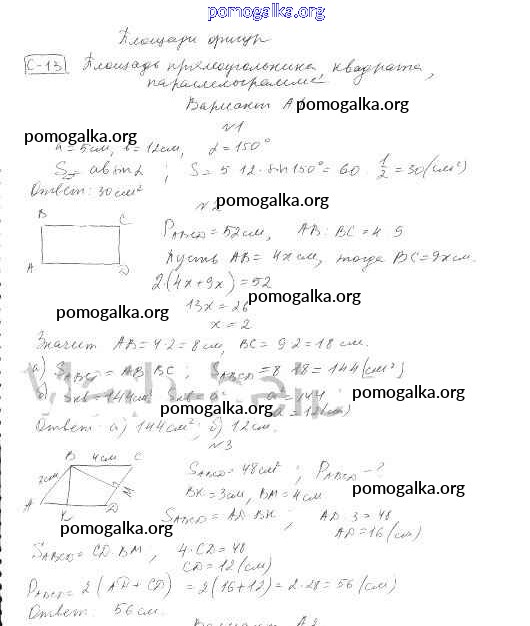 pomogalka.org
Площади фигур
С-13 Площадь прямоугольника, квадрата,
параллелограмма
Вариант А1
pomogalka.org
№1
pomogalka.org
a=5см, b=12см, α=150°
S=absinα; S=5·12·sin150°=60·1/2=30(см²)
Ответ: 30см²
pomogalka.org
№2
B C
A D
P ABCD=52см, AB:BC=4:9
Пусть AB=4x см, тогда BC=9x см.
2(4x+9x)=52
pomogalka.org
13x=26
pomogalka.org
x=2
Значит AB=4·2=8см, BC=9·2=18см.
а) S ABCD=AB·BC; S ABCD=8·18=144(см²)
pomogalka.org
б) Sкв=144см² Sкв=a² a²=144
pomogalka.org
a=12(см)
Ответ: а) 144см²; б) 12см.
№3
B 4см C
3см
A K D M
S ABCD=48см²; P ABCD-?
BK=3см, BM=4см
pomogalka.org
S ABCD=AD·BK; AD·3=48
AD=16(см)
pomogalka.org
S ABCD=CD·BM, 4·CD=48
CD=12(см)
pomogalka.org
P ABCD=2(AD+CD)=2(16+12)=2·28=56(см)
Ответ: 56см.
pomogalka.org
Вариант А2